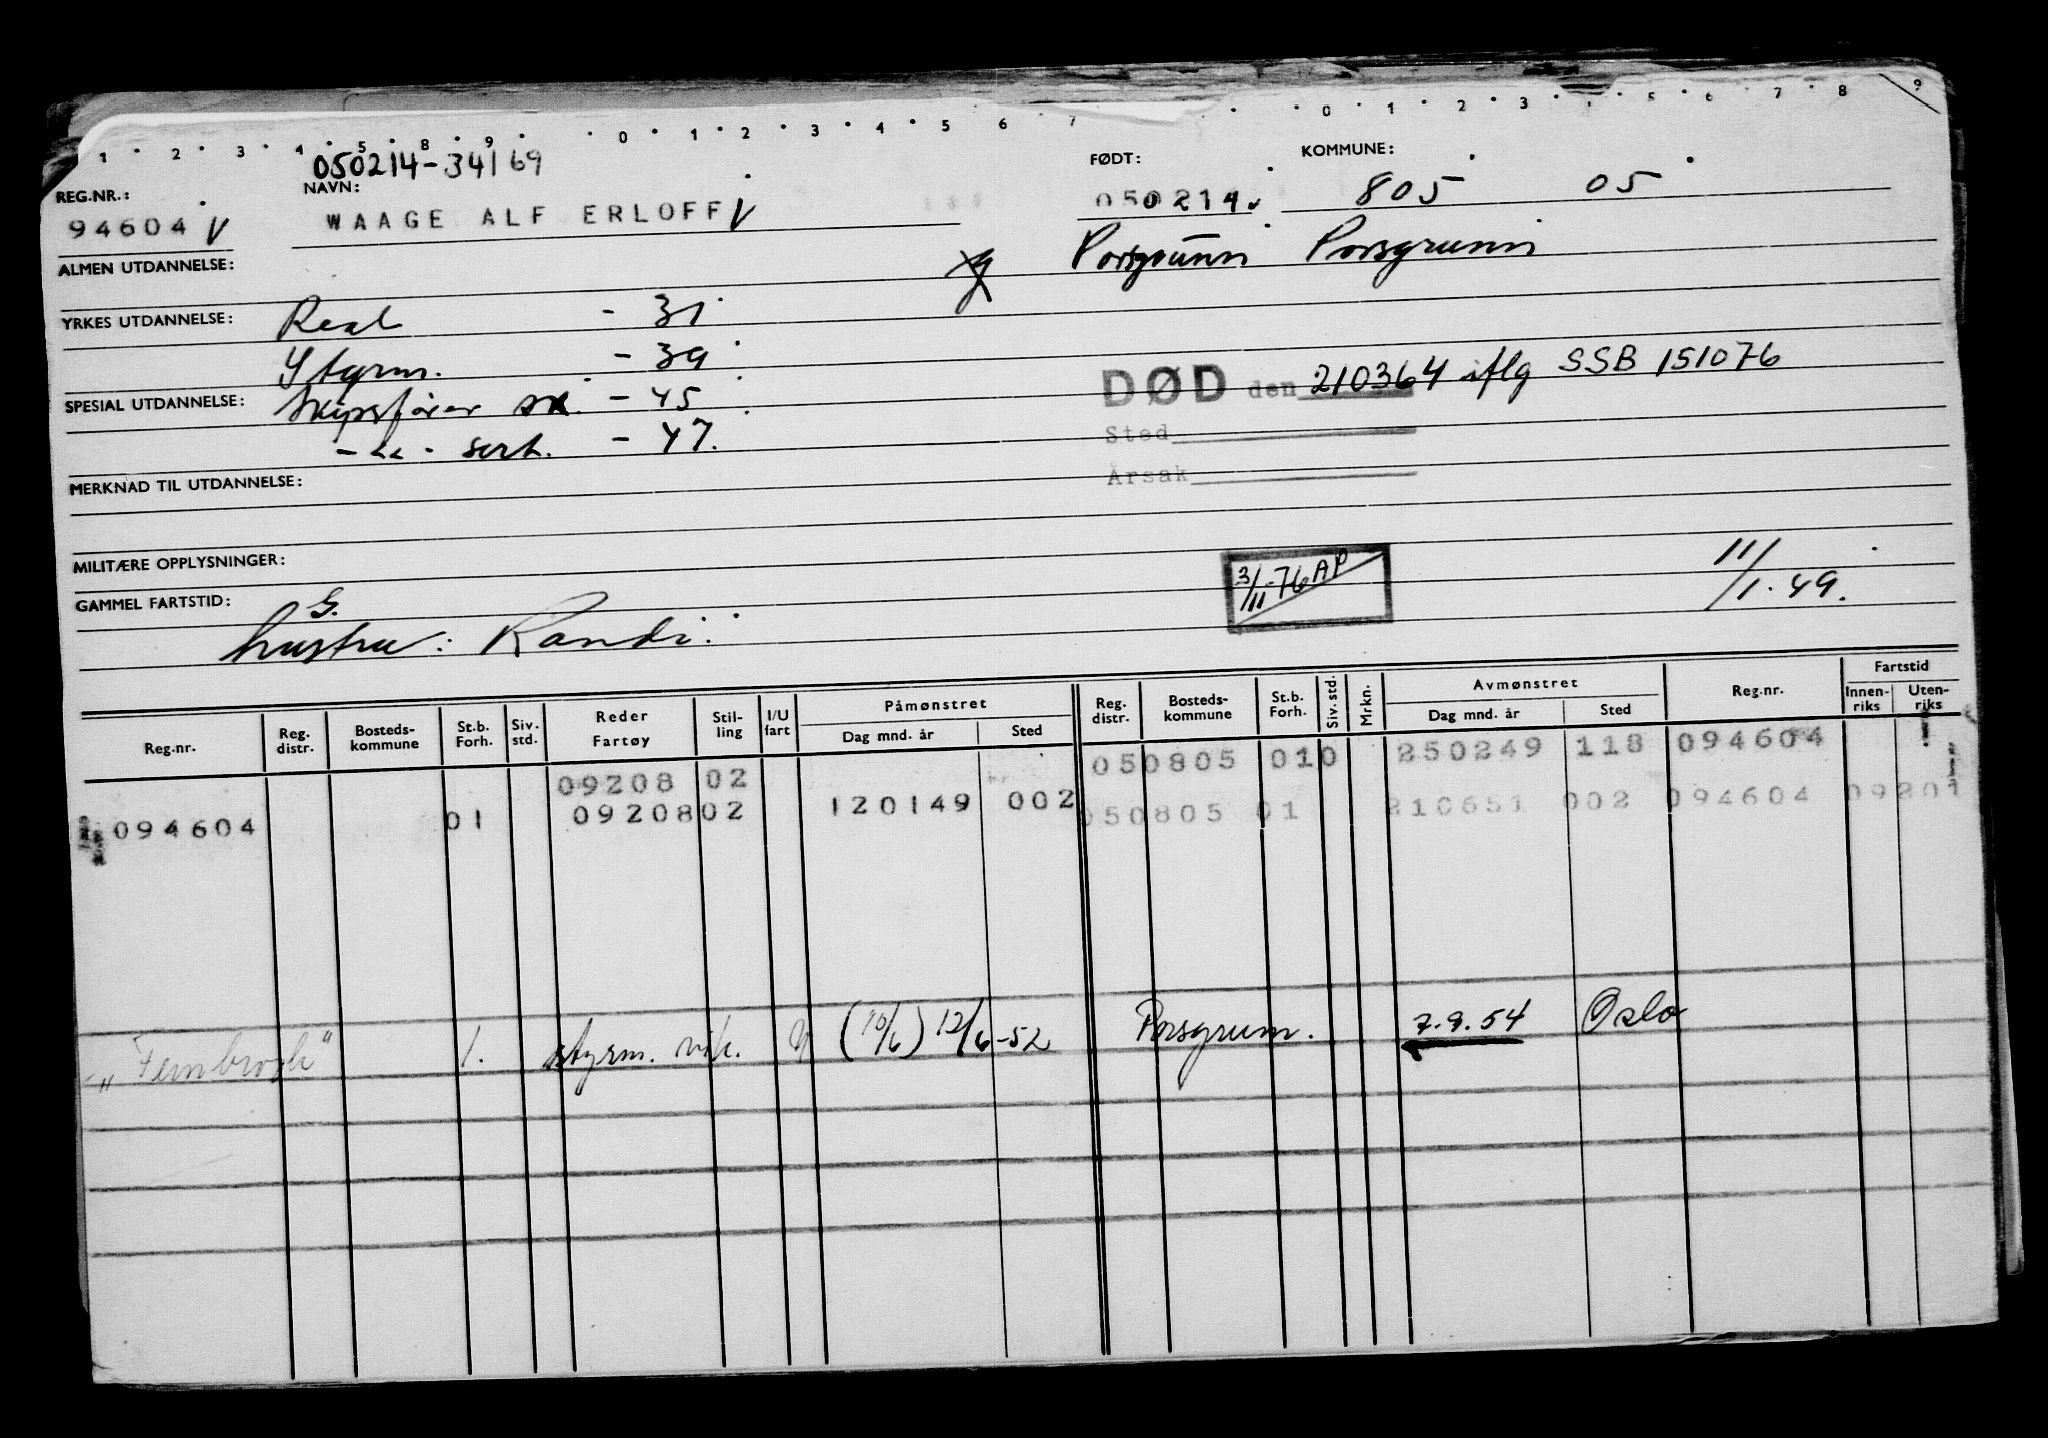 1 • 2 • 3 • 4 • 5 • 8 • 9 • • 0 • 1 • 2 • 3 • 4 • 5 6 7 • • 0 • 1 • 2 • 3 • 5 • 6 • 7 • 8 9
050214-34169
REG.NR.: NAVN: FØDT: KOMMUNE:
94604 V WAAGE ALF ERLOFF V 050214 v 805 05
ALMEN UTDANNELSE: Porsgrunn Porsgrunn
YRKES UTDANNELSE: Real - 31
Styrm. - 39
DØD den 210364 iflg SSB 151076
SPESIAL UTDANNELSE: Skipsfører sk. - 45
Sted
- " - sert. - 47.
Årsak
MERKNAD TIL UTDANNELSE:
MILITÆRE OPPLYSNINGER: 3/11-76 AP 11/1.49.
GAMMEL FARTSTID: G.
hustru: Randi
Reg.nr. Reg. distr. Bosteds-kommune St.b. Forh. Siv. std. Reder Fartøy Stil-ling I/U fart Påmønstret Dag mnd. år Sted Reg. distr. Bosteds-kommune St.b. Forh. Siv. std. Mrkn. Avmønstret Dag mnd. år Sted Reg.nr. Fartstid Innen-riks Uten-riks
09208 02 050805 010 250249 118 094604
094604 01 09208 02 120149 002 050805 01 210651 002 094604 09201
"Fernbrook" 1. styrm. vik. (10/6) 12/6-52 Porsgrunn. 7.9.54 Oslo